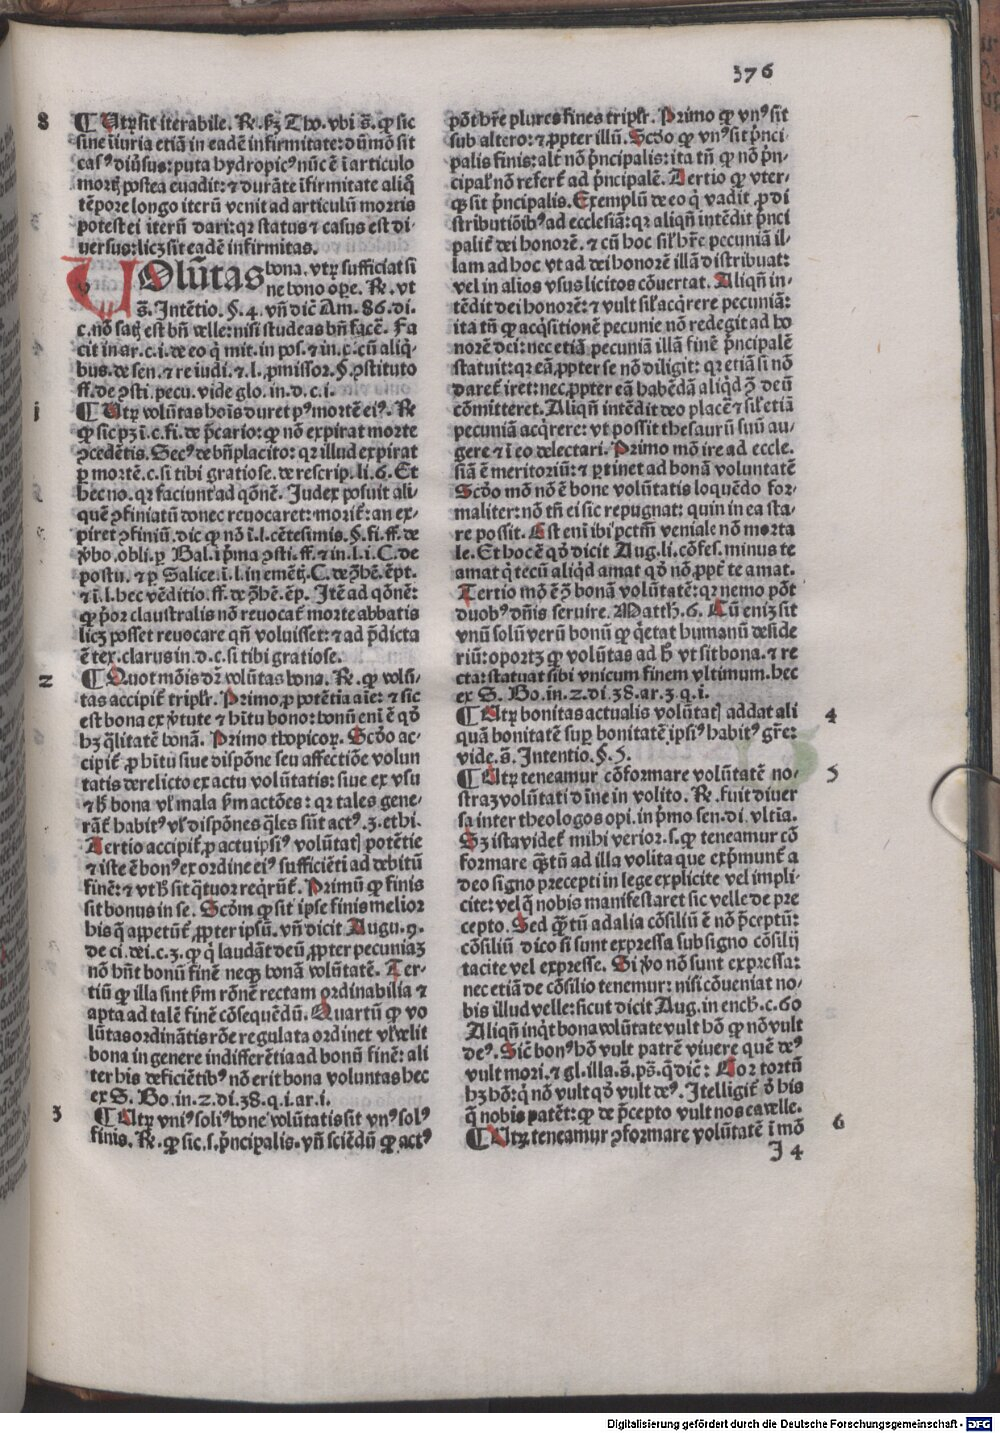 376
8
¶ Utrꝫ sit iterabile. R̃. ẜꝫ Tho. vbi s̃. ꝙ sic
sine iniuria etiã in eadẽ infirmitate: dũmõ sit
casꝰ diũsus: puta hydropicꝰ nũc ẽ ĩ articulo
mortꝭ postea euadit: ⁊ durãte ĩfirmitate aliq̃
tẽpore longo iterũ venit ad articulũ mortis
potest ei iterũ dari: qꝛ status ⁊ casus est di-
uersus: licꝫ sit eadẽ infirmitas.
VOlũtas bona. vtrꝫ sufficiat si
ne bono oꝑe. R̃. vt
s̃. Intẽtio. §. 4. vñ dic̃ Am. 86. di.
c. nõ satꝭ est bñ velle: nisi studeas bñ facẽ. Fa
cit in ar. c. i. de eo q̇ mit. in pos. ⁊ in. c. cũ aliq̇-
bus. de sen. ⁊ re iudi. ⁊ l. ꝓmissor. §. ꝯstituto
ff. de ꝯsti. pecu. vide glo. in. d. c. i.
i
¶ Utrꝫ volũtas hoĩs duret pꝰ mortẽ eiꝰ. R̃
ꝙ sic pꝫ ĩ. c. fi. de p̃cario: ꝙ nõ expirat morte
ꝯcedẽtis. Secꝰ de bñplacito: qꝛ illud expirat
ꝑ mortẽ. c. si tibi gratiose. de rescrip. li. 6. Et
hec no. qꝛ faciunt̃ ad qõnẽ. Judex posuit ali-
quẽ ꝯfiniatũ donec reuocaret: morit̃: an ex-
piret ꝯfiniũ. dic ꝙ nõ ĩ. l. cẽtesimis. §. fi. ff. de
v̓bo. obli. ꝑ Bal. ĩ p̃ma ꝯsti. ff. ⁊ in. l. i. C. de
postu. ⁊ ꝑ Salice. ĩ. l. in emẽtꝭ. C. de ꝯ̃hẽ. ẽpt.
⁊ ĩ. l. hec vẽditio. ff. de ꝯ̃hẽ. ẽp. Itẽ ad qõnẽ:
ꝙ p̃or claustralis nõ reuocat̃ morte abbatis
licꝫ posset reuocare qñ voluisset: ⁊ ad p̃dicta
ẽ tex. clarus in. d. c. si tibi gratiose.
2
¶ Quot mõis dr̃ volũtas bona. R̃. ꝙ volũ-
tas accipit̃ triplr̃. Primo, ꝓ potẽtia aĩe: ⁊ sic
est bona ex v̓tute ⁊ hĩtu bono: bonũ enĩ ẽ qd̓
hꝫ q̃litatẽ bonã. Primo thopicoꝝ. Scd̓o ac-
cipit̃. ꝓ hĩtu siue dispõne seu affectiõe volun
tatis derelicto ex actu volũtatis: siue ex vsu
⁊ h̓ bona vl̓ mala ẜm actões: qꝛ tales gene-
rãt̃ habitꝰ vl̓ dispões q̃les sũt actꝰ. 3. ethi.
Tertio accipit̃, ꝓ actu ipsiꝰ volũtatꝭ potẽtie
⁊ iste ẽ bonꝰ ex ordine eiꝰ sufficiẽti ad debitũ
finẽ: ⁊ vt h̓ sit q̃tuor reqr̃ũt̃. Primũ ꝙ finis
sit bonus in se. Scd̓m ꝙ sit ipse finis melior
his q̃ appetũt̃, ꝓpter ipsũ. vñ dicit Augu. 9.
de ci. dei. c. 3. ꝙ q̇ laudãt deũ, ꝓpter pecuniaꝫ
nõ hñt bonũ finẽ neqꝫ bonã volũtatẽ. Ter-
tiũ ꝙ illa sint ẜm rõnẽ rectam ordinabilia ⁊
apta ad talẽ finẽ cõsequẽdũ. Quartũ ꝙ vo
lũtas ordinãtis rõe regulata ordinet vl̓ velit
bona in genere indifferẽtia ad bonũ finẽ: ali
ter his deficiẽtibꝰ nõ erit bona voluntas hec
ex S. Bo. in. 2. di. 38. q. i. ar. i.
3
¶ Utrꝫ vniꝰ soliꝰ bone volũtatis sit vnꝰ solꝰ
finis. R̃. ꝙ sic. s. p̃ncipalis. vñ sciẽdũ ꝙ actꝰ
põt hr̃e plures fines triplr̃. Primo ꝙ vnꝰ sit
sub altero: ⁊ ꝓpter illũ. Scd̓o ꝙ vnꝰ sit p̃nci-
palis finis: alt̓ nõ p̃ncipalis: ita tñ ꝙ nõ p̃n-
cipal̓ nõ refert̃ ad p̃ncipalẽ. Tertio ꝙ vter-
qꝫ sit p̃ncipalis. Exemplũ de eo q̇ vadit, ꝓ di
stributiõibꝰ ad ecclesiã: qꝛ aliqñ intẽdit p̃nci
palit̓ dei honorẽ. ⁊ cũ hoc sil̓ hr̃e pecuniã il-
lam ad hoc vt ad dei honorẽ illã distribuat:
vel in alios vsus licitos cõuertat. Aliqñ in-
tẽdit dei honorẽ: ⁊ vult sil̓ acq̇rere pecuniã:
ita tñ ꝙ acq̇sitionẽ pecunie nõ redegit ad ho
norẽ dei: nec etiã pecuniã illã finẽ p̃ncipalẽ
statuit: qꝛ eã, ꝓpter se nõ diligit: qꝛ etiã si nõ
daret̃ iret: nec, ꝓpter eã habẽdã aliq̇d ꝯ̃ deũ
cõmitteret. Aliqñ intẽdit deo placẽ ⁊ sil̓ etiã
pecuniã acq̇rere: vt possit thesaurũ suũ au-
gere ⁊ ĩ eo delectari. Primo mõ ire ad eccle-
siã ẽ meritoriũ: ⁊ ꝑtinet ad bonã voluntatẽ
Scd̓o mõ nõ ẽ bone volũtatis loquẽdo for-
maliter: nõ tñ ei sic repugnat: quin in ea sta-
re possit. Est enĩ ibi pctm̃ veniale nõ morta
le. Et hoc ẽ qd̓ dicit Aug. li. cõfes. minus te
amat q̇ tecũ aliq̇d amat qd̓ nõ, ꝓpt̓ te amat.
Tertio mõ ẽ ꝯ̃ bonã volũtatẽ: qꝛ nemo põt
duobꝰ dñis seruire. Matth. 6. Cũ enĩ sit
vnũ solũ verũ bonũ ꝙ q̇etat humanũ deside
riũ: oportꝫ ꝙ volũtas ad h̓ vt sit bona. ⁊ re
cta: statuat sibi vnicum finem vltimum. hec
ex S. Bo. in. 2. di. 38. ar. 3. q. i.
4
¶ Utrꝫ bonitas actualis volũtatꝭ addat ali
quã bonitatẽ suꝑ bonitatẽ ipsiꝰ habitꝰ gr̃e:
vide. s̃. Intentio. §. 5.
5
¶ Utrꝫ teneamur cõformare volũtatẽ no-
straꝫ voluntati diuine in volito. R̃. fuit diuer
sa inter theologos opi. in p̃mo sen. di. vltia.
Sꝫ ista videt̃ mihi verior. s. ꝙ teneamur cõ
formare q̃tũ ad illa volita que exp̃munt̃ a
deo signo precepti in lege explicite vel impli-
cite: vel q̃ nobis manifestaret sic velle de pre
cepto. Sed q̃tũ ad alia cõsiliũ ẽ nõ p̃ceptũ:
cõsiliũ dico si sunt expressa sub signo cõsilij
tacite vel expresse. Si v̓o nõ sunt expressa:
nec etiã de cõsilio tenemur: nisi cõueniat no-
bis illud velle: sicut dicit Aug. in ench. c. 60
Aliqñ inq̇t bona volũtate vult hõ ꝙ nõ vult
deꝰ. Sic̃ bonꝰ hõ vult patrẽ viuere quẽ deꝰ
vult mori. ⁊ gl. illa. s̃. ps̃. q̃ dic̃: Cor tortũ
hꝫ hõ: q̇ nõ vult qd̓ vult deꝰ. Itelligit̃ d̓ his
q̃ nobis patẽt: ꝙ de p̃cepto vult nos ea velle.
6
¶ Utrꝫ teneamur ꝯformare volũtatẽ ĩ mõ
I 4
Digitalisierung gefördert durch die Deutsche Forschungsgemeinschaft - DFG